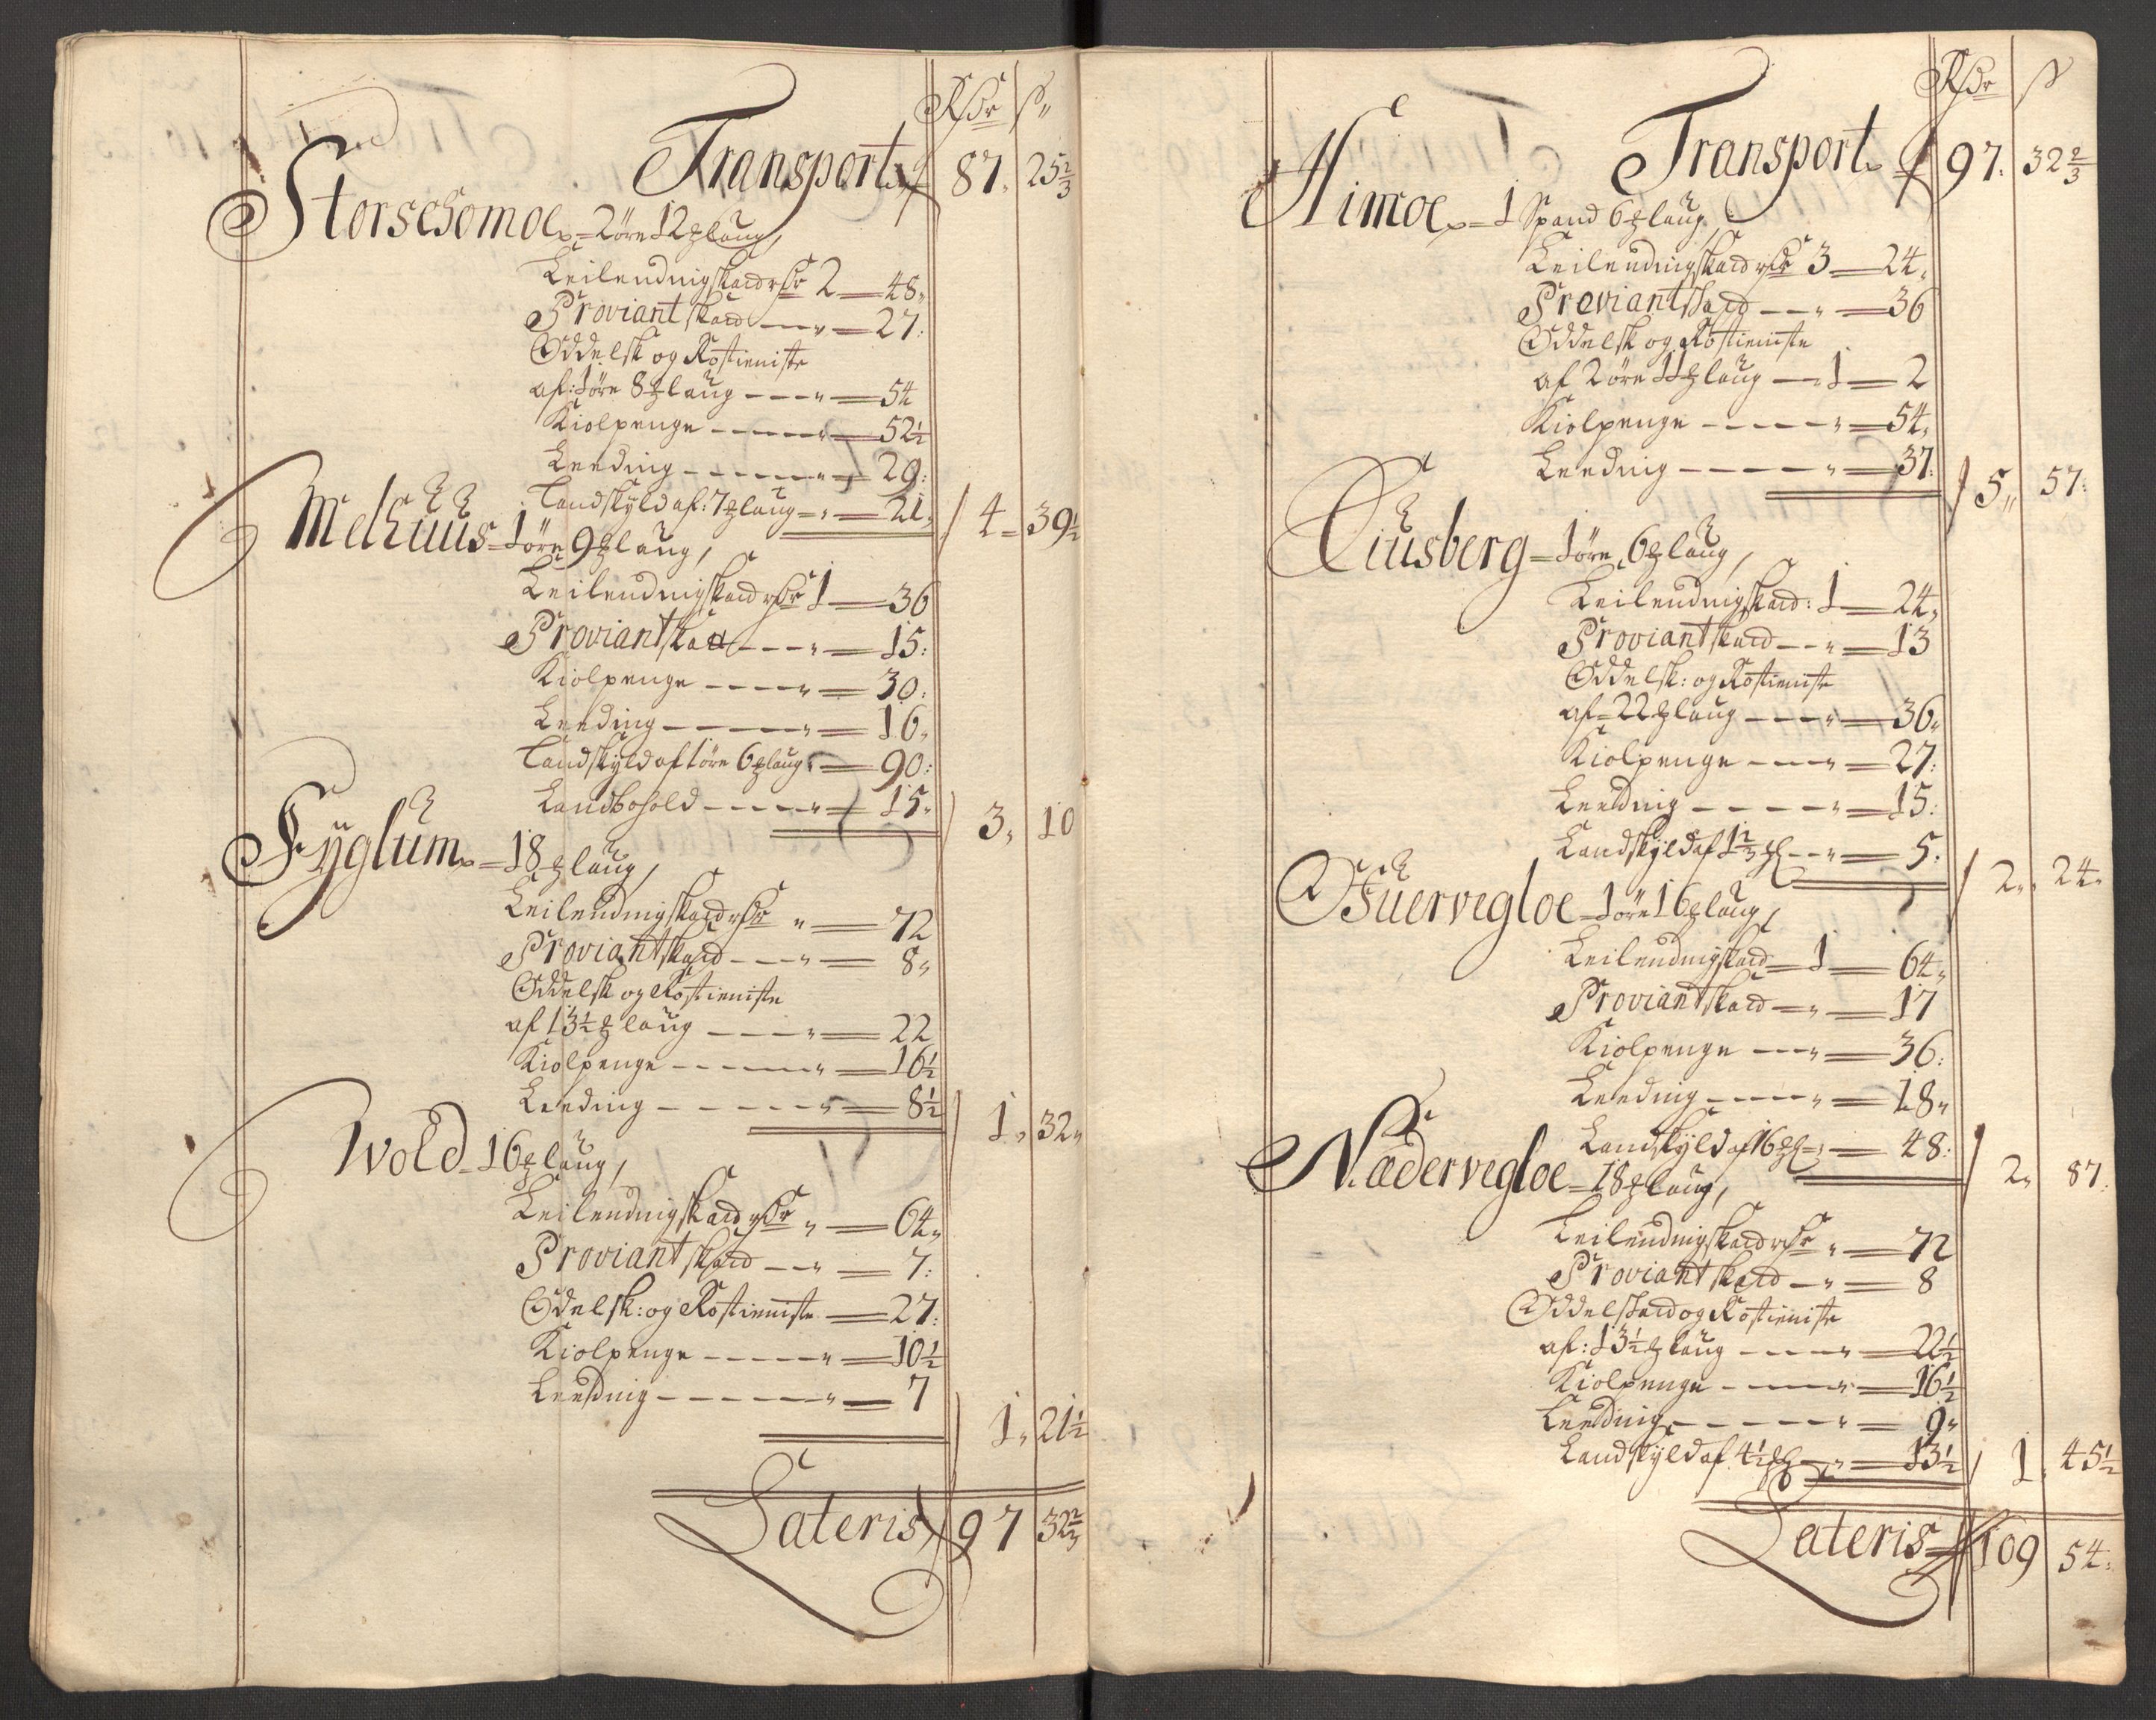 Rdr ß
Transport 87. 25 2/3
Storsehomoe = 2 öre 12 ℔ laug,
Leilendingskaed rdr 2 — 48.
Proviantskaed — 27.
Oddelsk og Rostieniste
af: 1 öre 8 ℔ laug — 54
Kiolpenge — 52 1/2
Leeding — 29:
Landskyld af: 7 ℔ laug — 21. 4 - 39 1/2
Melhuus = 1 öre 9 ℔ laug,
Leilendingskaed rdr 1 — 36
Proviantskaed — 15:
Kiolpenge — 30:
Leeding — 16.
Landskyld af 1 öre 6 ℔ laug — 90:
Landbohold — 15. 3. 10
Fyglum = 18 ℔ laug,
Leilendingskaed rdr — 72
Proviantskaed — 8.
Oddelsk og Rostieniste
af 13 1/2 ℔ laug — 22
Kiolpenge — 16 1/2
Leeding — 8 1/2 1. 32.
Wold = 16 ℔ laug,
Leilendingskaed rdr — 64.
Proviantskaed — 7.
Odelsk: og Rostieniste — 27.
Kiolpenge — 10 1/2
Leeding — 7
1. 21 1/2
Lateris 97 32 2/3
Rdr ß
Transport 97. 32 2/3
Himoe = 1 Spand 6 ℔ laug.
Leilendingskaed rdr 3 — 24.
Proviantskaed — 36
Oddelsk og Rostieniste
af 2 öre 11 ℔ laug — 1 — 2
Kiolpenge — 54.
Leeding — 37. 5. 57.
Liusberg = 1 öre, 6 ℔ laug,
Leilendingskaed: 1 — 24.
Proviantskaed — 13
Oddelsk: og Rostieniste
af = 22 ℔ laug — 36.
Kiolpenge — 27.
Leeding — 15:
Landskyld af 1 2/3 ℔ — 5. 2. 24.
Öfuervegloe = 1 öre 16 ℔ laug,
Leilendingskaed = 1 — 64.
Proviantskaed — 17
Kiolpenge — 36.
Leeding — 18.
Landskyld af 16 ℔ — 48: 2. 87.
Nædervegloe = 18 ℔ laug,
Leilendingskaed rdr — 72
Proviantskaed — 8
Oddelskaed og Rostieniste
af: 13 1/2 ℔ laug — 22 1/2
Kiolpenge — 16 1/2
Leeding — 9.
Landskyld af 4 1/2 ℔ — 13 1/2 1. 45 1/2
Lateris 109 54.